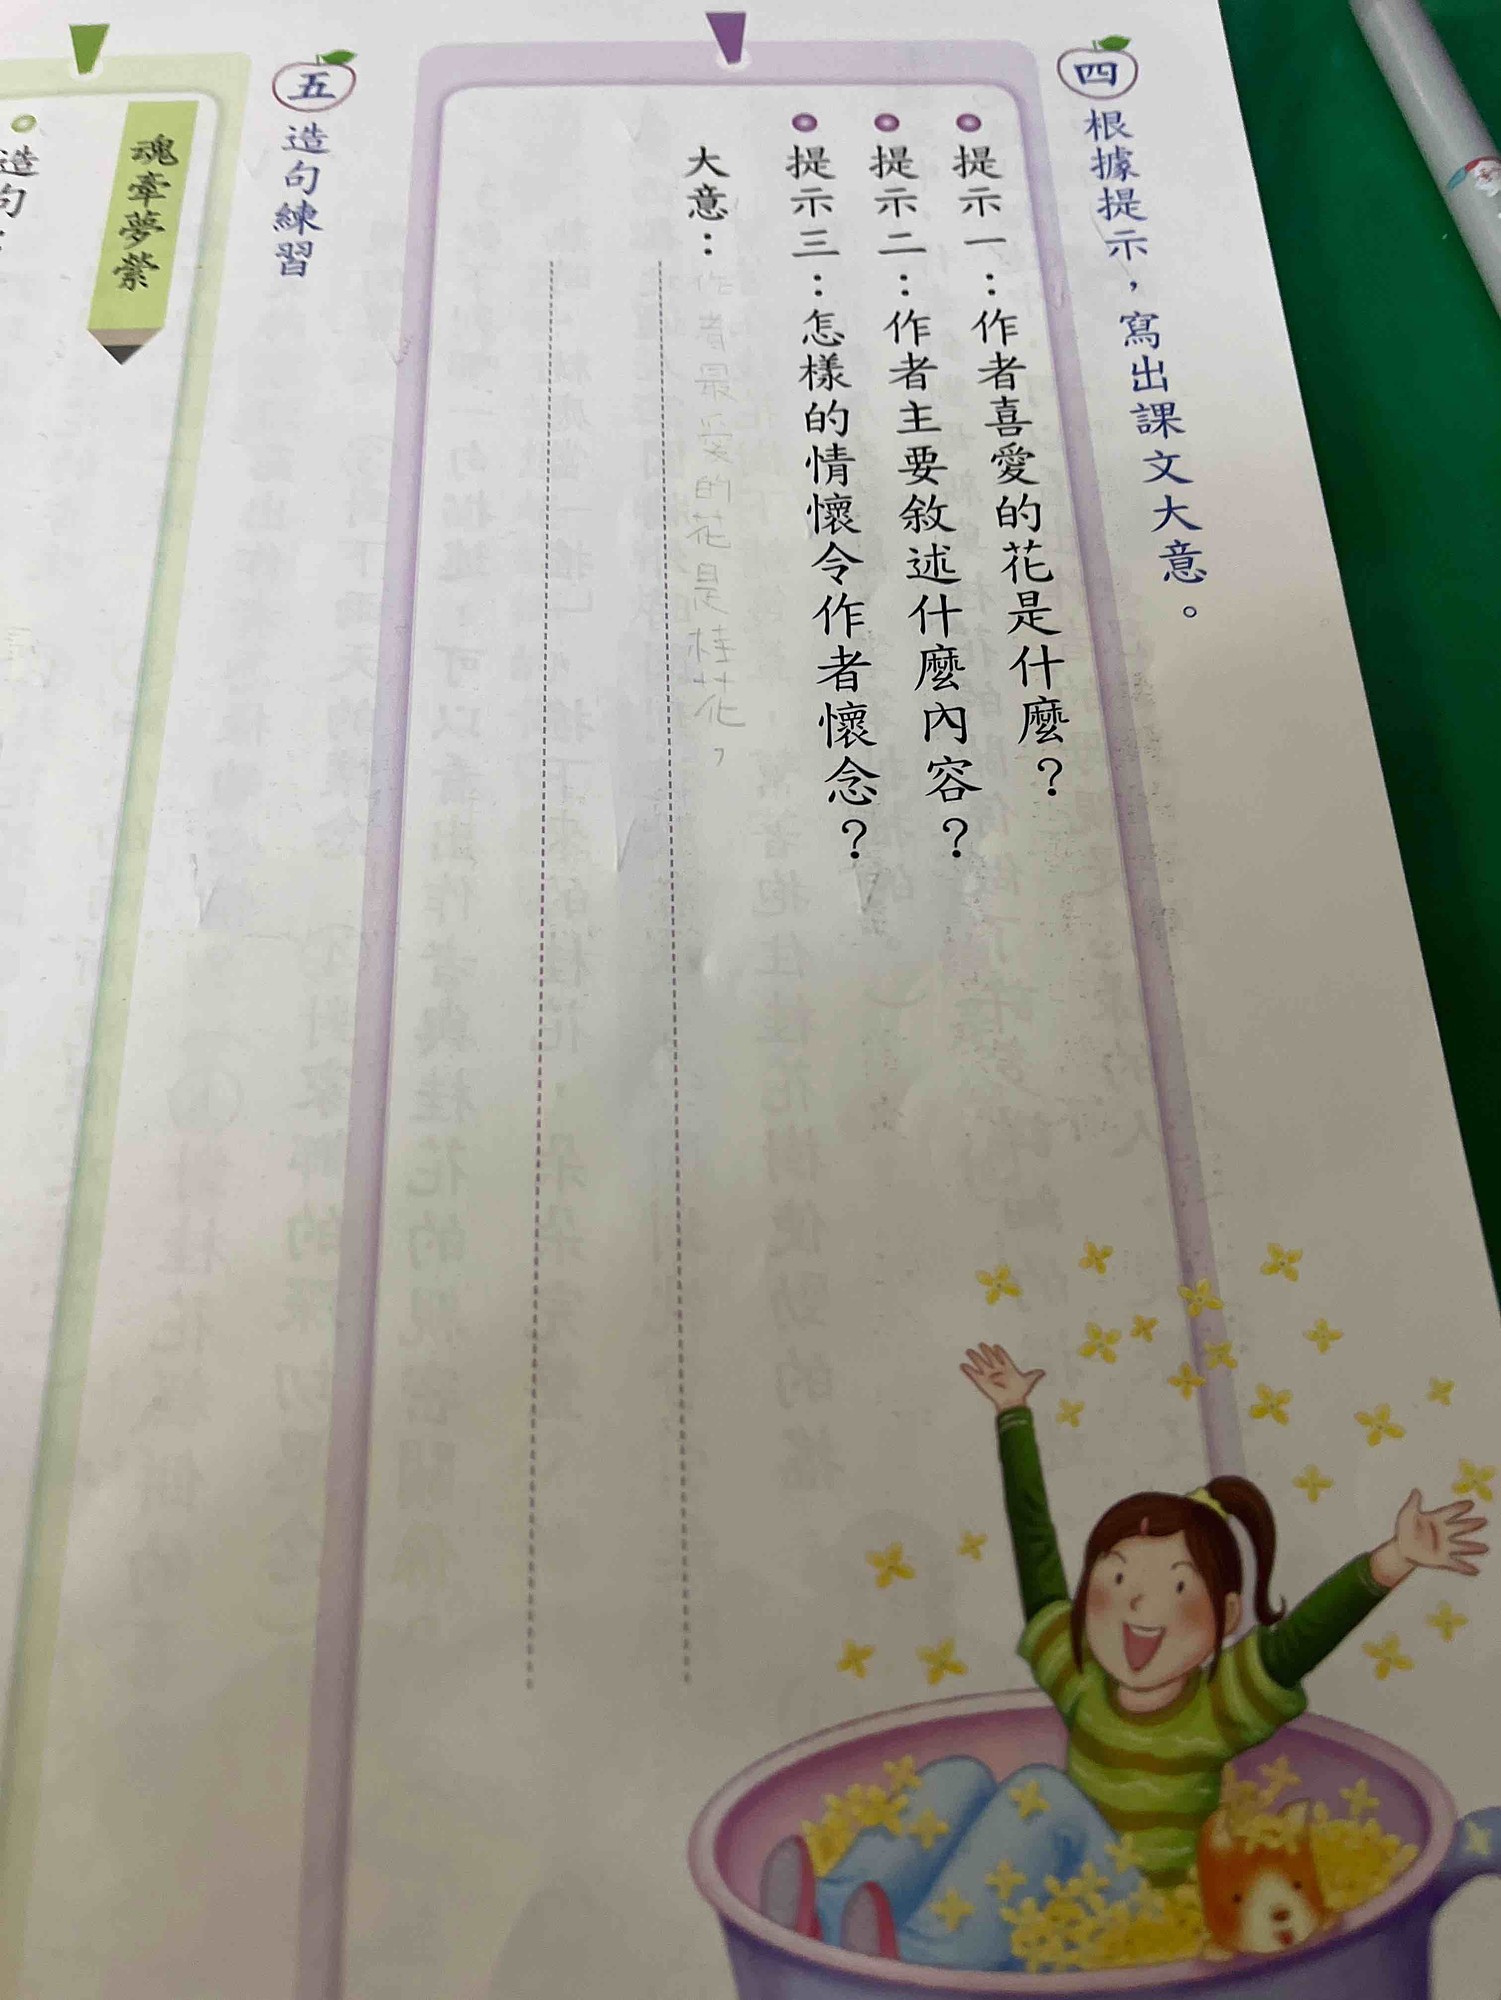 四 根據提示，寫出課文大意。
提示一：作者喜愛的花是什麼？
提示二：作者主要敘述什麼內容？
提示三：怎樣的情懷令作者懷念？
大意：作者最愛的花是桂花，
五 造句練習
魂牽夢縈
造句：